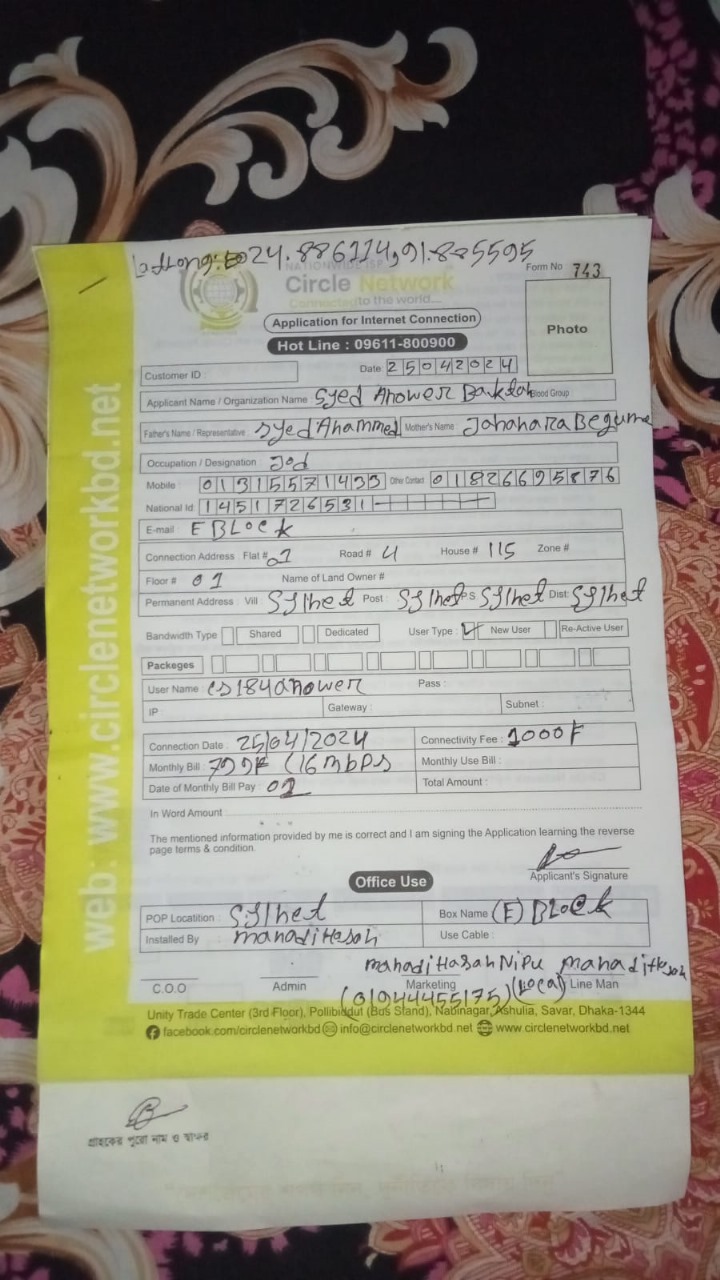 24.886114,91.885595
NATIONWIDE ISP
Circle Network
Connected to the world....
Form No 743
Application for Internet Connection
Hot Line : 09611-800900
Photo
Customer ID :
Date 25042024
Applicant Name / Organization Name Syed Anower Bakdah Blood Group
Father's Name / Representative : Syed Ahammed Mother's Name : Jahanara Begume
Occupation / Designation : Jod
Mobile : 01315571433 Other Contact 01826695876
National Id 1451726531
E-mail E BLock
Connection Address : Flat # 01 Road # 4 House # 115 Zone #
Floor # 01 Name of Land Owner #
Permanent Address : Vill Sylhet Post : Sylhet PS Sylhet Dist: Sylhet
Bandwidth Type Shared Dedicated User Type : New User Re-Active User
Packeges
User Name : cs184anower Pass :
IP Gateway : Subnet :
Connection Date : 25/04/2024 Connectivity Fee : 1000F
Monthly Bill : 799F (16 mbps Monthly Use Bill :
Date of Monthly Bill Pay : 01 Total Amount :
In Word Amount
The mentioned information provided by me is correct and I am signing the Application learning the reverse
page terms & condition.
Applicant's Signature
Office Use
POP Locatition : Sylhet Box Name (E) BLock
Installed By mahadi Hasah Use Cable :
mahadi Hasah Nipu mahadi Hasah
C.O.O Admin Marketing Line Man
(01944455175) (Local)
Unity Trade Center (3rd Floor), Pollibiddut (Bus Stand), Nabinagar, Ashulia, Savar, Dhaka-1344
facebook.com/circlenetworkbd info@circlenetworkbd.net www.circlenetworkbd.net
web : www.circlenetworkbd.net
গ্রাহকের পুরো নাম ও স্বাক্ষর